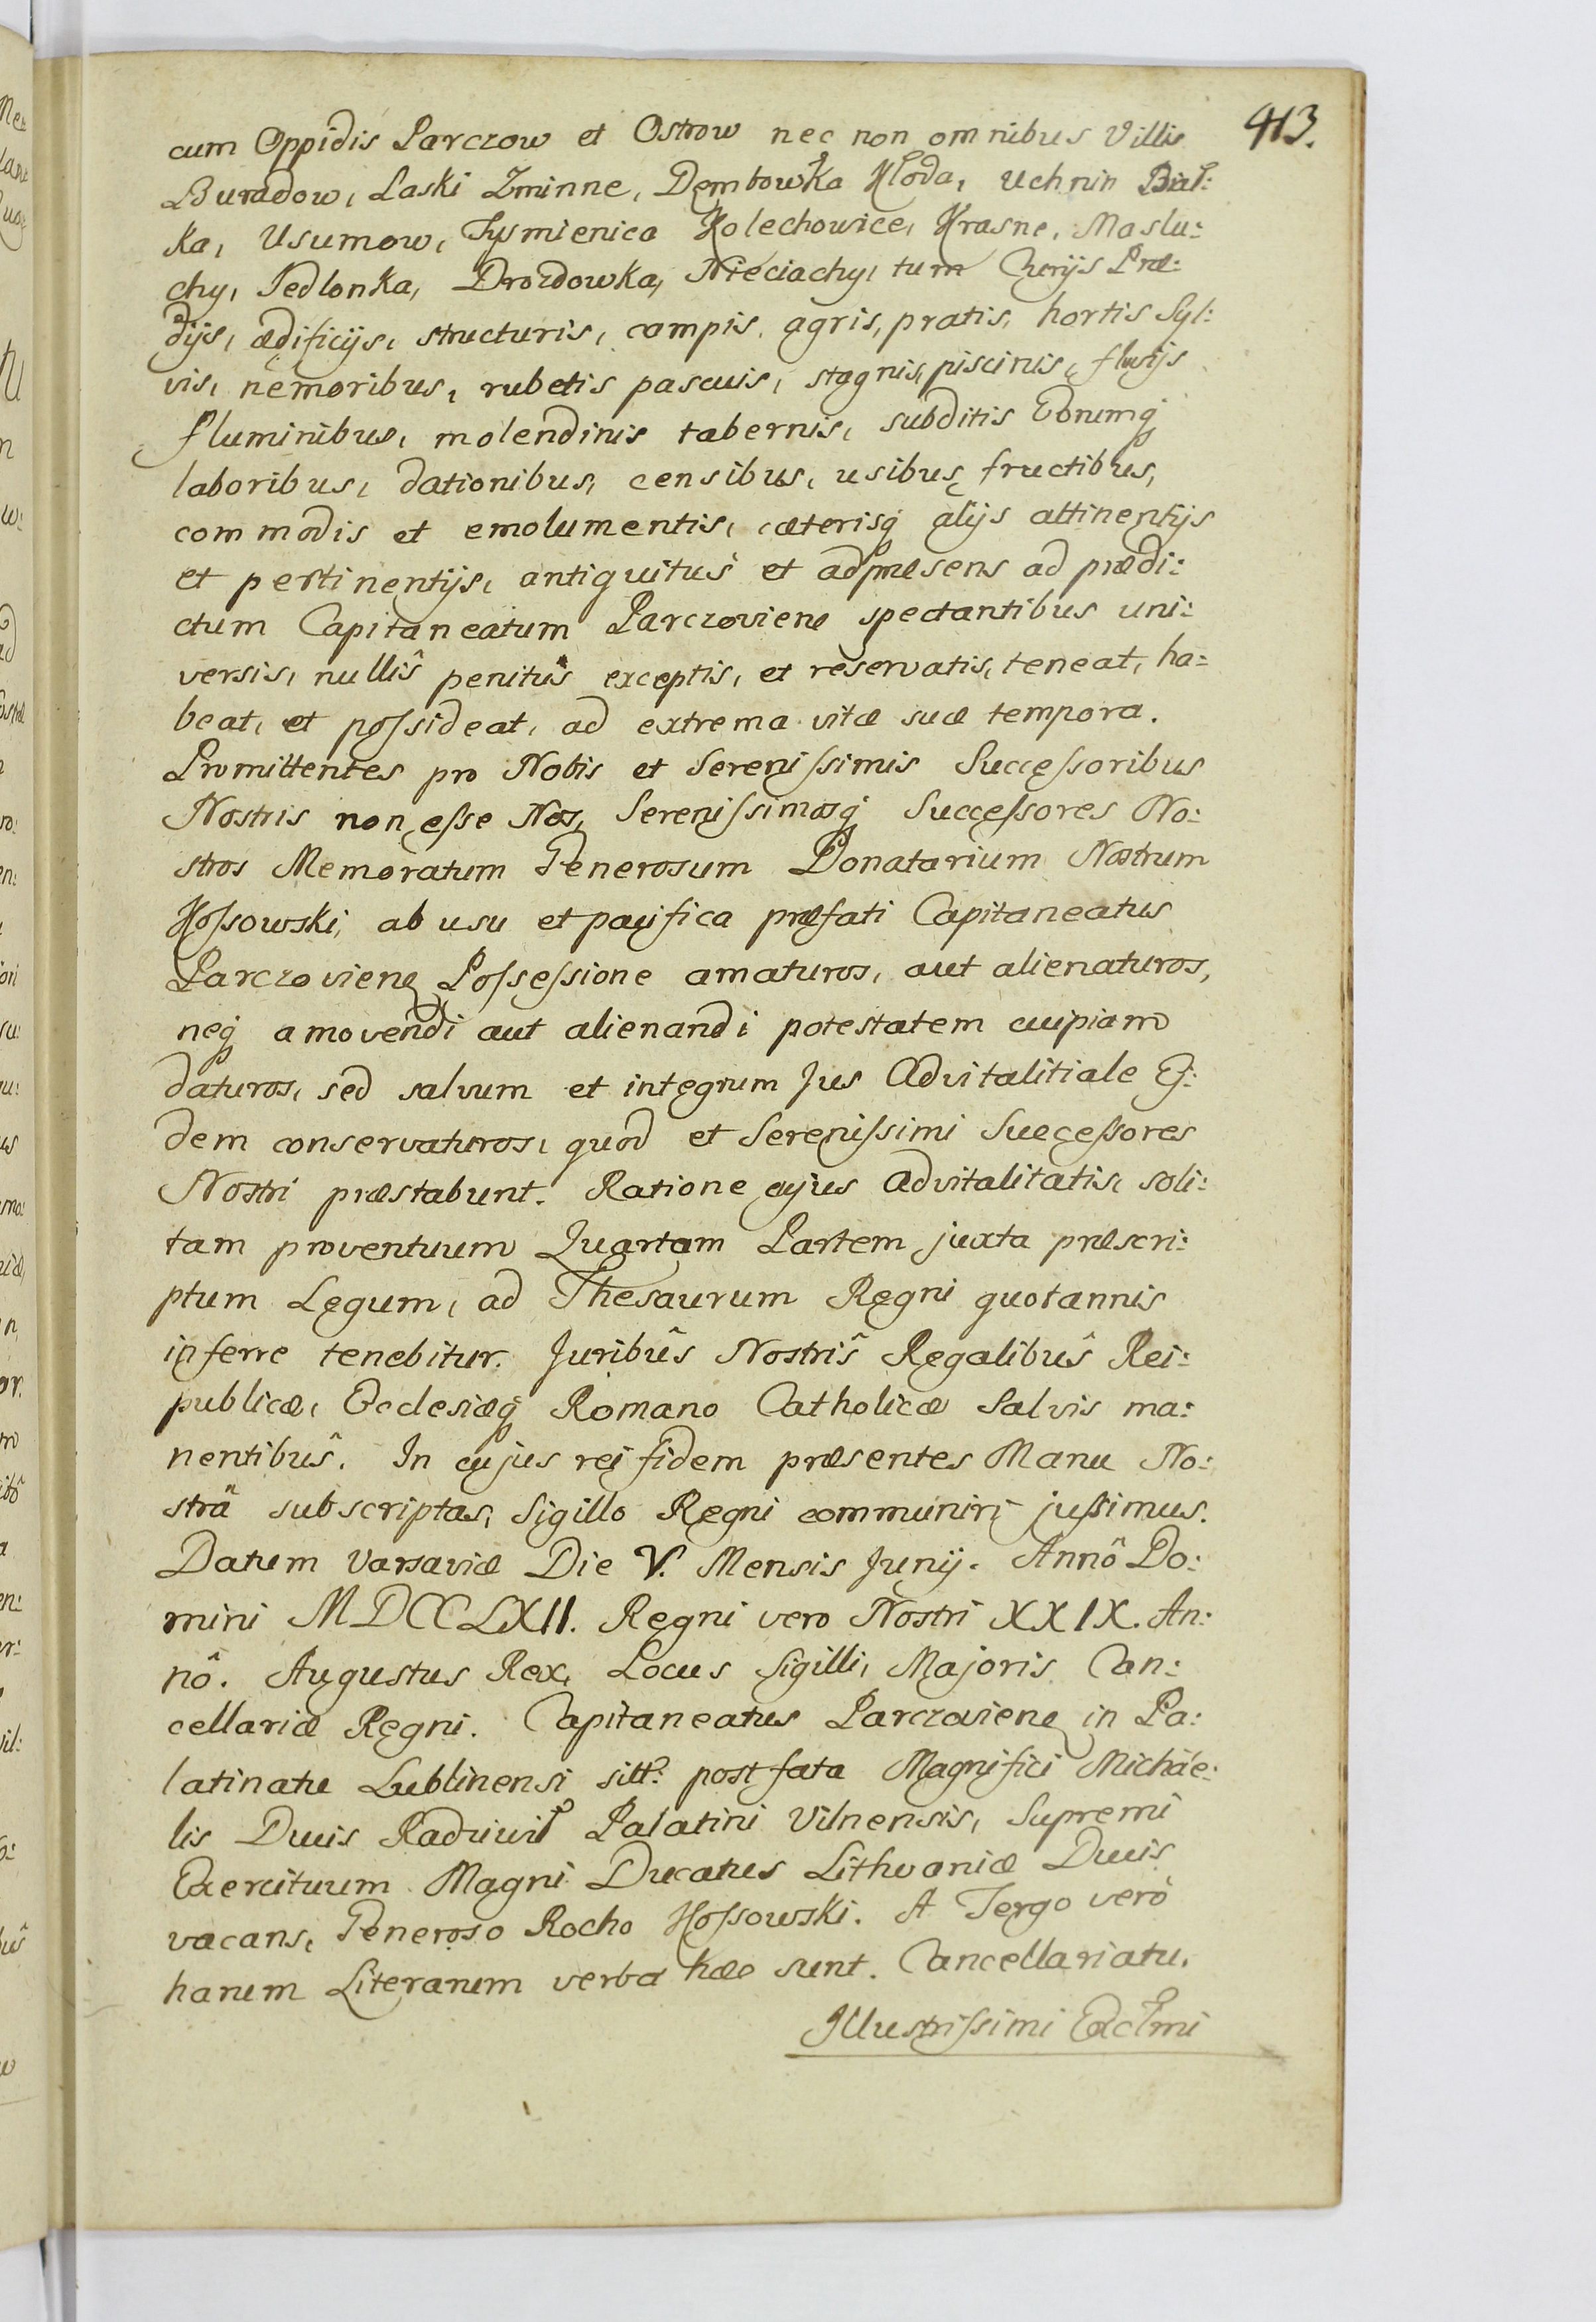 413.
cum Oppidis Parczow et Ostrow nec non omnibus Villis
Buradow, Laski Zminne, Dembowka Kłoda, Uchnin Biał:
ka, Usumow, Tysmienica Kolechowice, Krasne, Maslu:
chy, Jedlonka, Drozdowka, Nieciachy, tum Curijs Præ:
dijs, ædificijs, structuris, campis, agris, pratis, hortis Syl:
vis, nemoribus, rubetis pascuis, stagnis, piscinis, fluvijs
fluminibus, molendinis tabernis, subditis Eorumq
laboribus, dationibus, censibus, usibus, fructibus,
commodis et emolumentis, cæterisq alijs attinentijs
et pertinentijs, antiquitus et adpræsens ad prædi:
ctum Capitaneatum Parczoviens spectantibus uni:
versis, nullis penitus exceptis, et reservatis, teneat, ha=
beat, et possideat, ad extrema vitæ suæ tempora.
Promittentes pro Nobis et Serenissimis Successoribus
Nostris non esse Nos, Serenissimosq Successores No:
stros Memoratum Generosum Donatarium Nostrum
Hossowski, ab usu et pacifica præfati Capitaneatus
Parczoviens Possessione amaturos, aut alienaturos,
neq amovendi aut alienandi potestatem cuipiam
daturos, sed salvum et integrum Jus Advitalitiale Ej:
dem conservaturos, quod et Serenissimi Successores
Nostri præstabunt. Ratione cujus Advitalitatis, soli:
tam proventuum Quartam Partem juxta præscri:
ptum Legum, ad Thesaurum Regni quotannis
inferre tenebitur. Juribûs Nostrîs Regalibûs Rei:
publicæ, Ecclesiæq Romano Catholicæ Salvis ma:
nentibûs. In cujus rej fidem præsentes Manu No:
strâ subscriptas, Sigillo Regni communiri jussimus.
Datum Varsaviæ Die V. Mensis Junij. Annô Do:
mini MDCCLXII. Regni vero Nostri XXIX. An:
nô. Augustus Rex, Locus Sigilli, Majoris Can:
cellariæ Regni. Capitaneatus Parczoviens in Pa:
latinatu Lublinensi sitt: post fata Magnifici Michae:
lis Ducis Radziwił Palatini Vilnensis, Supremi
Exercituum Magni Ducatus Lithvaniæ Ducis
vacans, Generoso Rocho Hossowski. A Tergo verò
harum Literarum verba hæc sunt. Cancellariatu.
Illustrissimi Exclmi